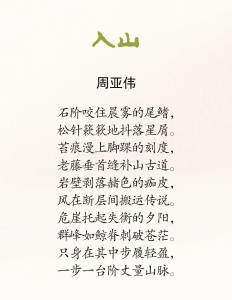 入山
周亚伟
石阶咬住晨雾的尾鳍，
松针簌簌地抖落星屑。
苔痕漫上脚踝的刻度，
老藤垂首缝补山古道。
岩壁剥落赭色的痂皮，
风在断层间搬运传说。
危崖托起失衡的夕阳，
群峰如鲸脊刺破苍茫。
只身在其中步履轻盈，
一步一台阶丈量山脉。